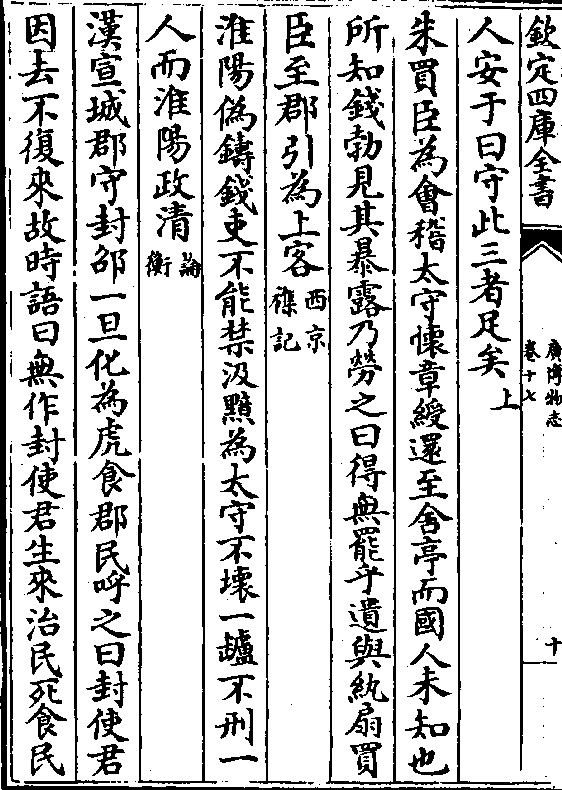 欽定四庫全書
廣博物志
卷十七
十
人安于曰守此三者足矣上
朱買臣為會稽太守懷章綬還至舍亭而國人未知也
所知錢勃見其暴露乃勞之曰得無罷乎遺與紈扇買
臣至郡引為上客西京襍記
淮陽偽鑄錢吏不能禁汲黯為太守不壞一鑪不刑一
人而淮陽政清論衡
漢宣城郡守封邵一旦化為虎食郡民呼之曰封使君
因去不復來故時語曰無作封使君生來治民死食民